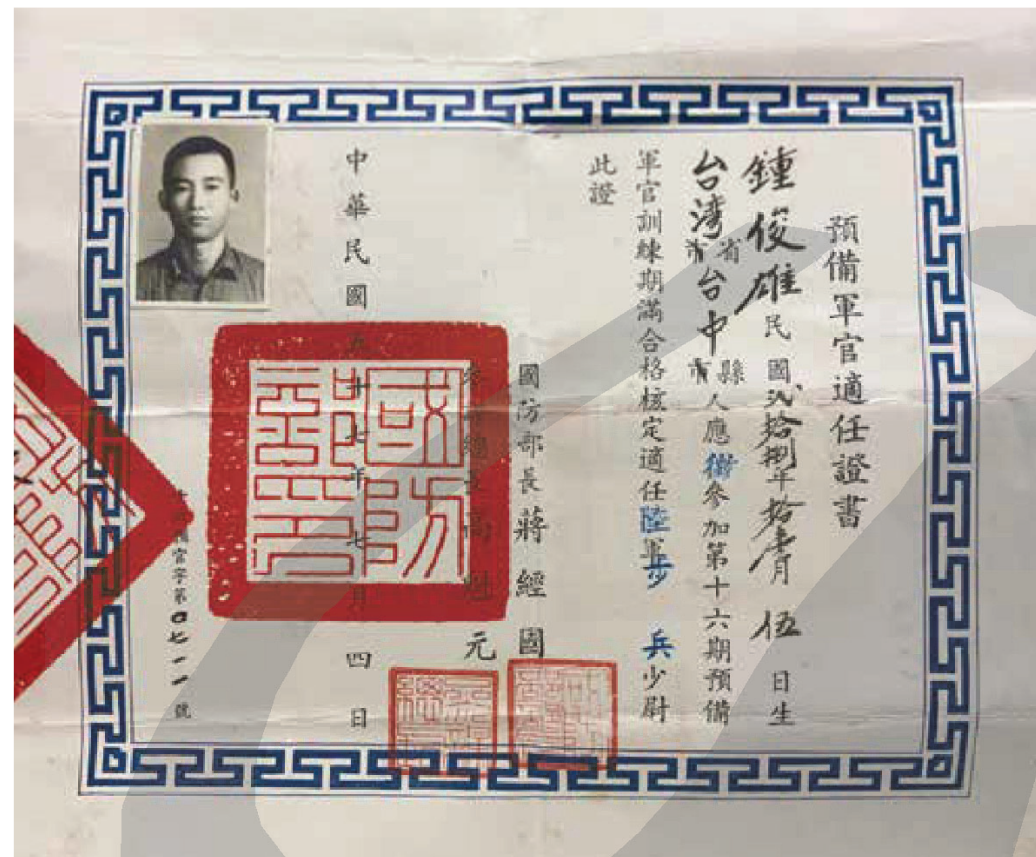 預備軍官適任證書
鍾俊雄民國貳拾捌年拾壹月伍日生
台灣省市台中縣市人應徵參加第十六期預備
軍官訓練期滿合格核定適任陸軍步兵少尉
此證
國防部長蔣經國
參謀總長高魁元
中華民國五十七年七月四日
官字第0七一一號
國防部印